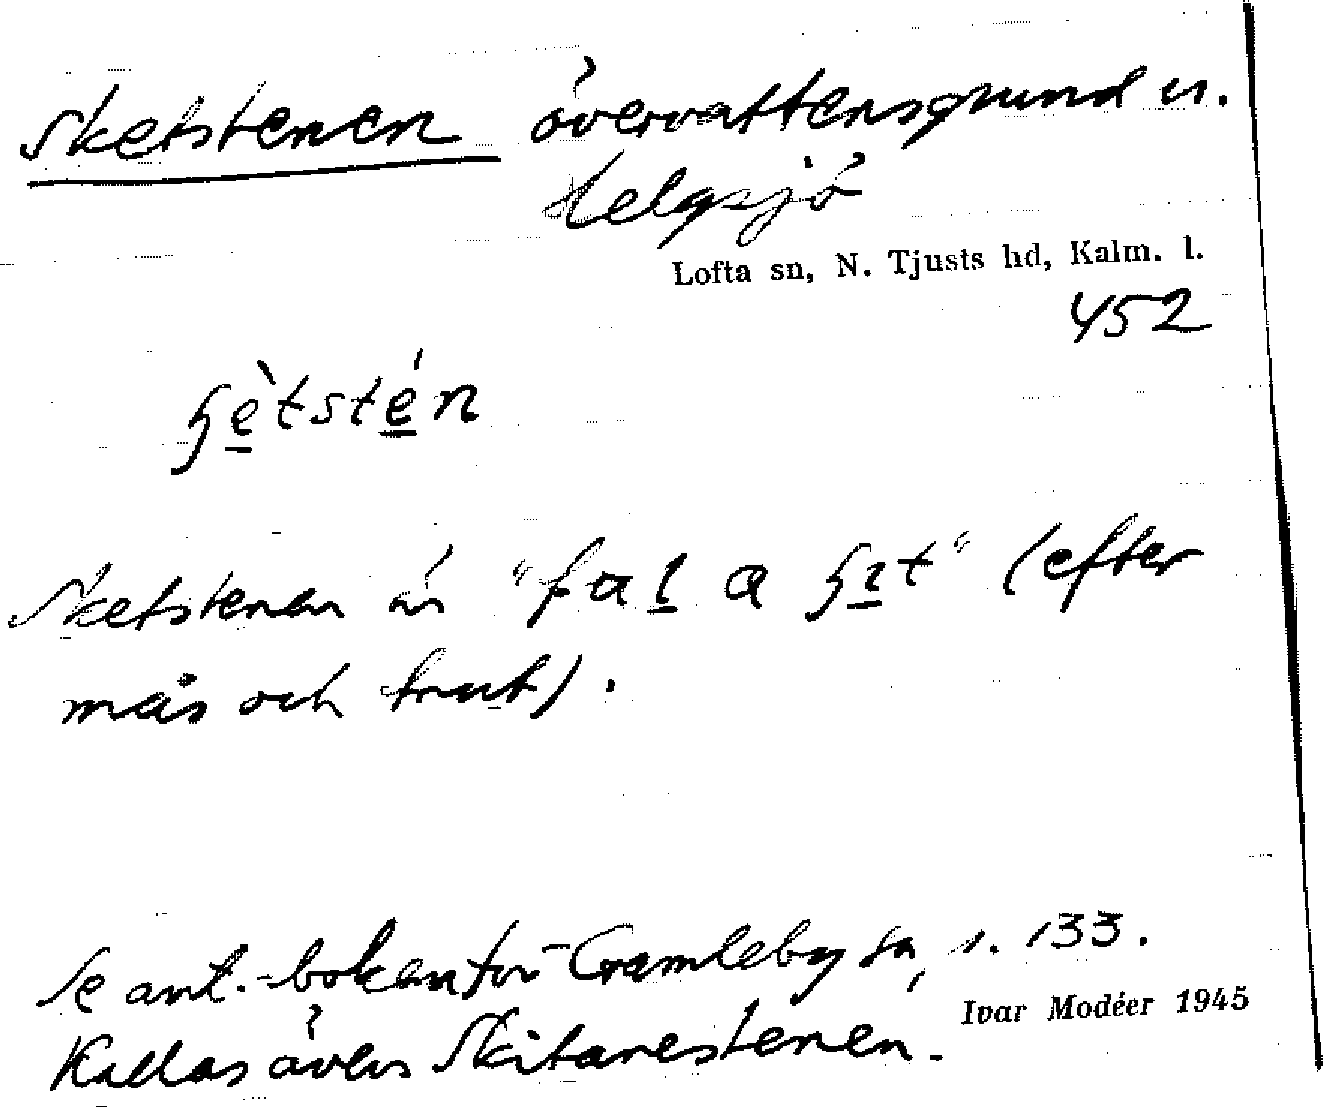 Sketstenen övervattensgrund n.
Helgsjö
Lofta sn, N. Tjusts hd, Kalm. l.
452
ɧètstén
Sketstenen är "fal a ɧıt" (efter
mås och trut).
Se ant.-boken för Gamleby sn, s. 133.
Ivar Modéer 1945
Kallas även Skitarestenen.